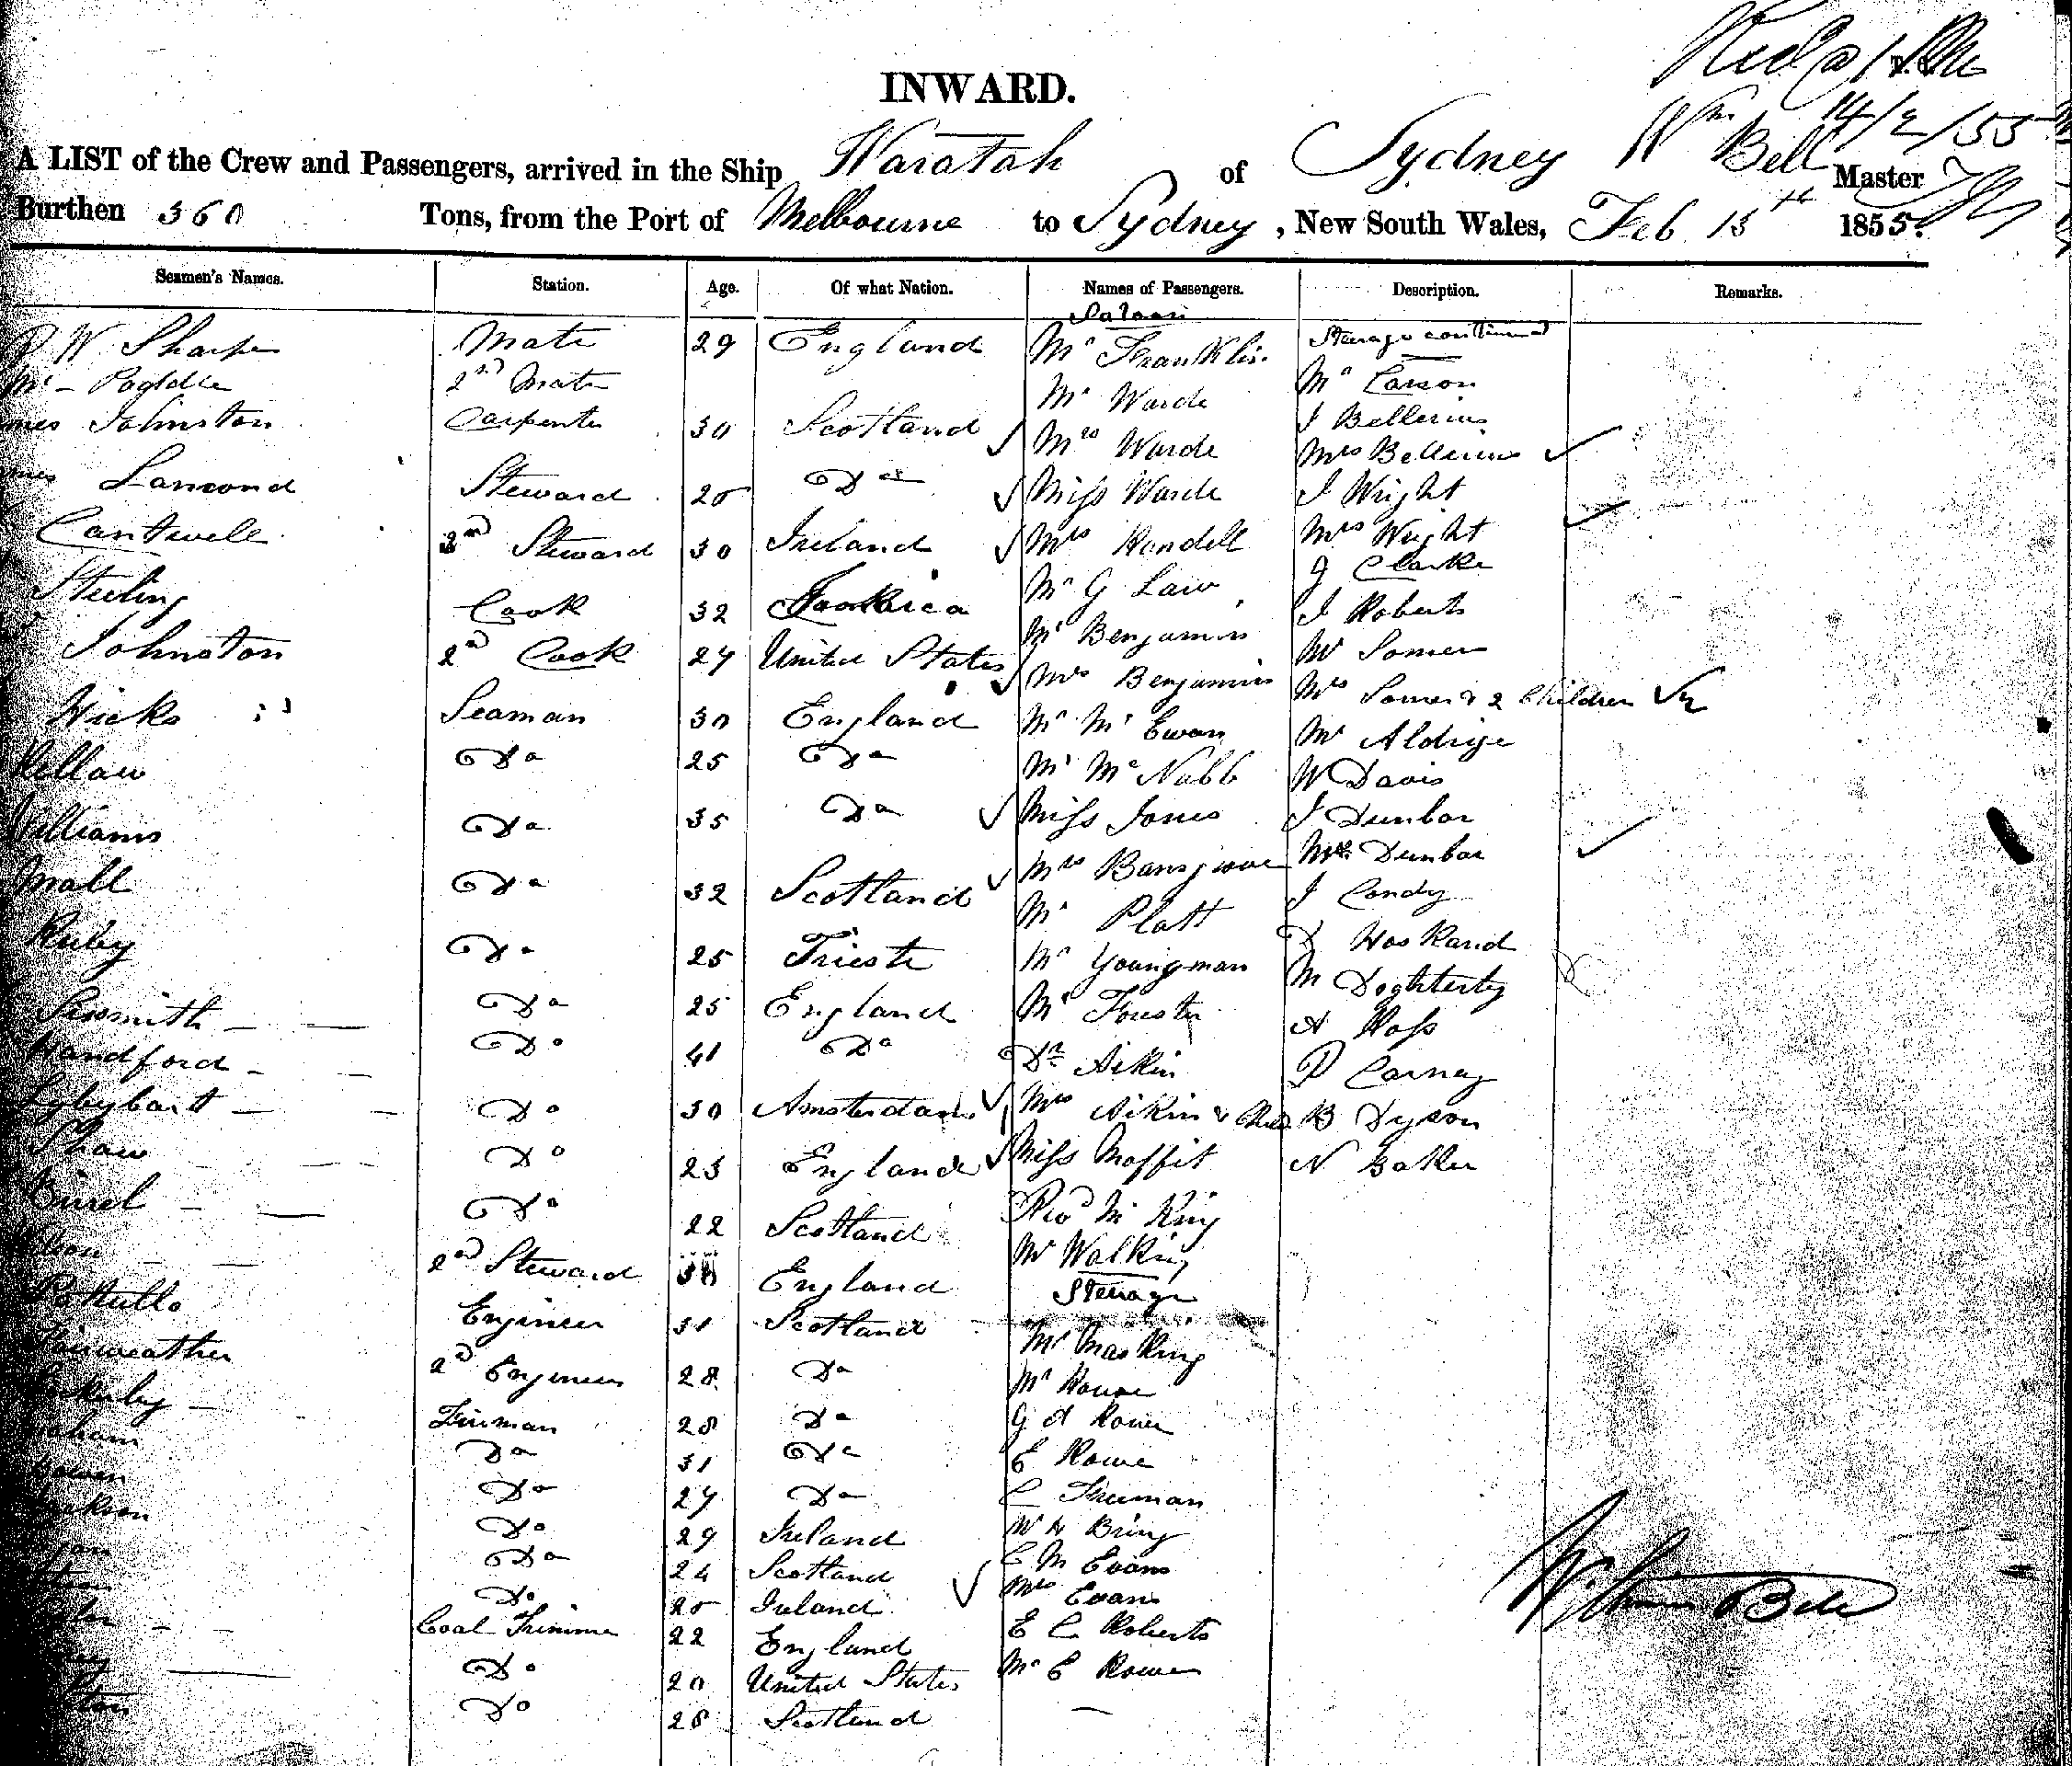 INWARD.
14/2/55
A LIST of the Crew and Passengers, arrived in the Ship Waratah of Sydney Wm Bell Master
Burthen 360 Tons, from the Port of Melbourne to Sydney, New South Wales, Feb 13th 1855.
Seamen's Names. Station. Age. Of what Nation. Names of Passengers. Description. Remarks.
Saloon
W Sharpe Mate 29 England Mr Franklin Steerage continued
2nd Mate Mr Warde Mr Carson
Johnston Carpenter 30 Scotland Mrs Warde J Bellerius
Mrs Bellerius
Lamond Steward 25 Do Miss Warde J Wright
Cantwell 2nd Steward 30 Ireland Mrs Hendell Mrs Wright
Sterling Cook 32 Mr G Law J Clarke
Mr Benjamin J Roberts
Johnston 2nd Cook 27 United States Mrs Benjamin Mr Somer
Hicks Seaman 30 England Mr Mc Ewan Mrs Somer & 2 Children
Kellaw Do 25 Do Mr Mc Nabb Mr Aldrige
W Davis
Williams Do 35 Do Miss Jones J Dunbar
Mall Do 32 Scotland Mrs Mrs Dunbar
Mr Platt J Condy
Ruby Do 25 Trieste Mr Youngman D Hoskand
Sixsmith Do 25 England Mr Forester M Doghterty
Handford Do 41 Do Dr Aikin A Ross
P Carney
Do 30 Amsterdam Mrs Aikin & Child B Dyson
Shaw Do 23 England Miss Moffit N Baker
Do 22 Scotland Revd Mr King
2nd Steward England Mr Walking
Steerage
Engineer 31 Scotland Mr Masking
Fairweather 2d Engineer 28 Do Mr Rowe
Fireman 28 Do G A Rowe
Do 31 Do E Rowe
Do 27 Do C Truman
Do 29 Ireland W H Bring
Do 24 Scotland C M Evans
Do 25 Ireland Mrs Evans
Coal Trimmer 22 England E C Roberts
Do 20 United States Mr E Rowe
Do 28 Scotland
William Bell